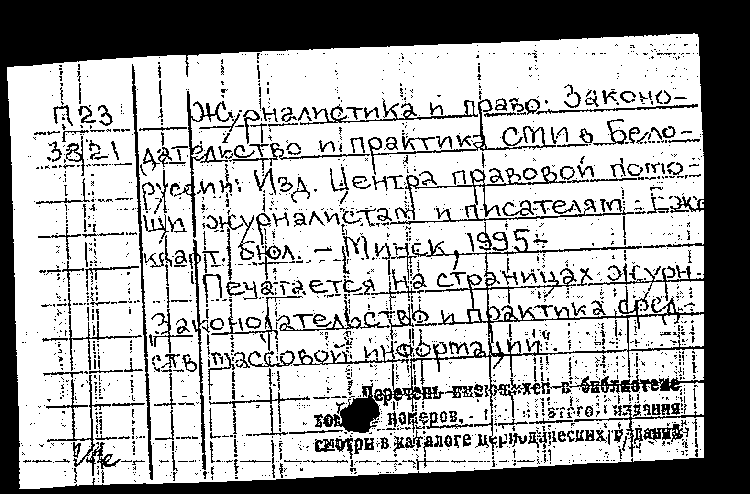 П23 Журналистика и право: Законо-
3821 дательство и практика СМИ в Бело-
руссии: Изд. Центра правовой помо-
щи журналистам и писателям: Еже
кварт. бюл. – Минск, 1995–
Печатается на страницах журн.
"Законодательство и практика сред-
ств массовой информации".
Перечень имеющихся в библиотеке
номеров. этого издания
смотри в каталоге периодических изданий